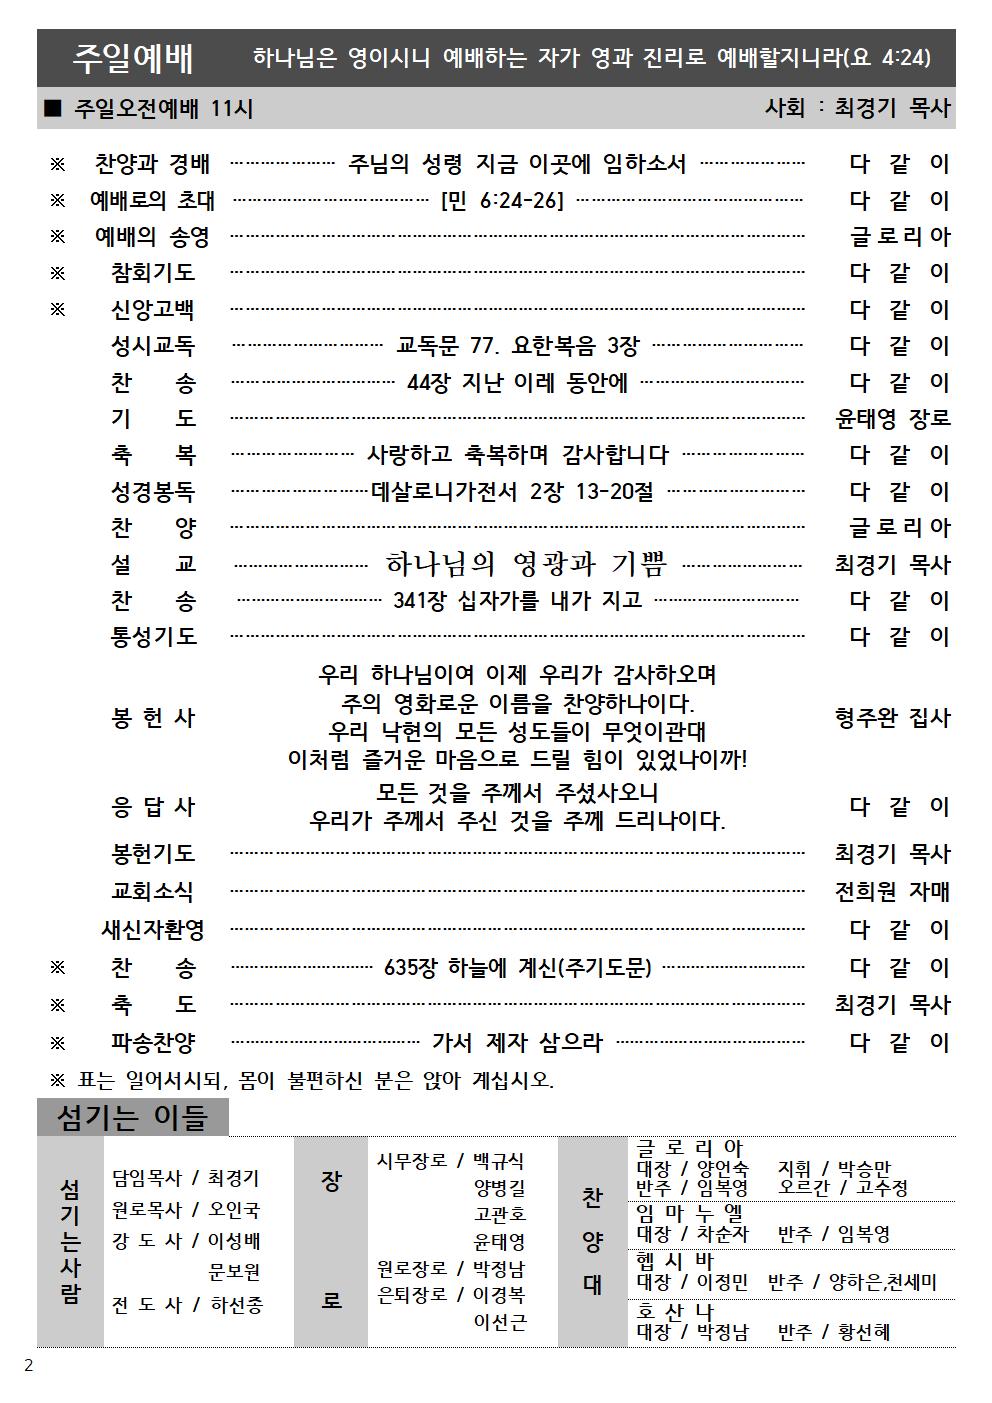 주일예배 하나님은 영이시니 예배하는 자가 영과 진리로 예배할지니라(요 4:24)
■ 주일오전예배 11시 사회 : 최경기 목사
※ 찬양과 경배 ………………… 주님의 성령 지금 이곳에 임하소서 ………………… 다 같 이
※ 예배로의 초대 ………………………………… [민 6:24-26] ……………………………………… 다 같 이
※ 예배의 송영 …………………………………………………………………………………………………… 글로리아
※ 참회기도 …………………………………………………………………………………………………… 다 같 이
※ 신앙고백 …………………………………………………………………………………………………… 다 같 이
성시교독 ………………………… 교독문 77. 요한복음 3장 ………………………… 다 같 이
찬 송 …………………………… 44장 지난 이레 동안에 …………………………… 다 같 이
기 도 …………………………………………………………………………………………………… 윤태영 장로
축 복 …………………… 사랑하고 축복하며 감사합니다 …………………… 다 같 이
성경봉독 ………………………데살로니가전서 2장 13-20절 ……………………… 다 같 이
찬 양 …………………………………………………………………………………………………… 글로리아
설 교 ……………………… 하나님의 영광과 기쁨 …………………… 최경기 목사
찬 송 ………………………… 341장 십자가를 내가 지고 ………………………… 다 같 이
통성기도 …………………………………………………………………………………………………… 다 같 이
우리 하나님이여 이제 우리가 감사하오며
주의 영화로운 이름을 찬양하나이다.
봉 헌 사 형주완 집사
우리 낙현의 모든 성도들이 무엇이관대
이처럼 즐거운 마음으로 드릴 힘이 있었나이까!
모든 것을 주께서 주셨사오니
응 답 사 다 같 이
우리가 주께서 주신 것을 주께 드리나이다.
봉헌기도 …………………………………………………………………………………………………… 최경기 목사
교회소식 …………………………………………………………………………………………………… 전희원 자매
새신자환영 …………………………………………………………………………………………………… 다 같 이
※ 찬 송 ………………………… 635장 하늘에 계신(주기도문) ………………………… 다 같 이
※ 축 도 …………………………………………………………………………………………………… 최경기 목사
※ 파송찬양 ………………………………… 가서 제자 삼으라 ………………………………… 다 같 이
※ 표는 일어서시되, 몸이 불편하신 분은 앉아 계십시오.
섬기는 이들
섬기는사람
담임목사 / 최경기
원로목사 / 오인국
강 도 사 / 이성배
문보원
전 도 사 / 하선종
장로
시무장로 / 백규식
양병길
고관호
윤태영
원로장로 / 박정남
은퇴장로 / 이경복
이선근
찬양대
글 로 리 아
대장 / 양언숙 지휘 / 박승만
반주 / 임복영 오르간 / 고수정
임 마 누 엘
대장 / 차순자 반주 / 임복영
헵 시 바
대장 / 이정민 반주 / 양하은,천세미
호 산 나
대장 / 박정남 반주 / 황선혜
2